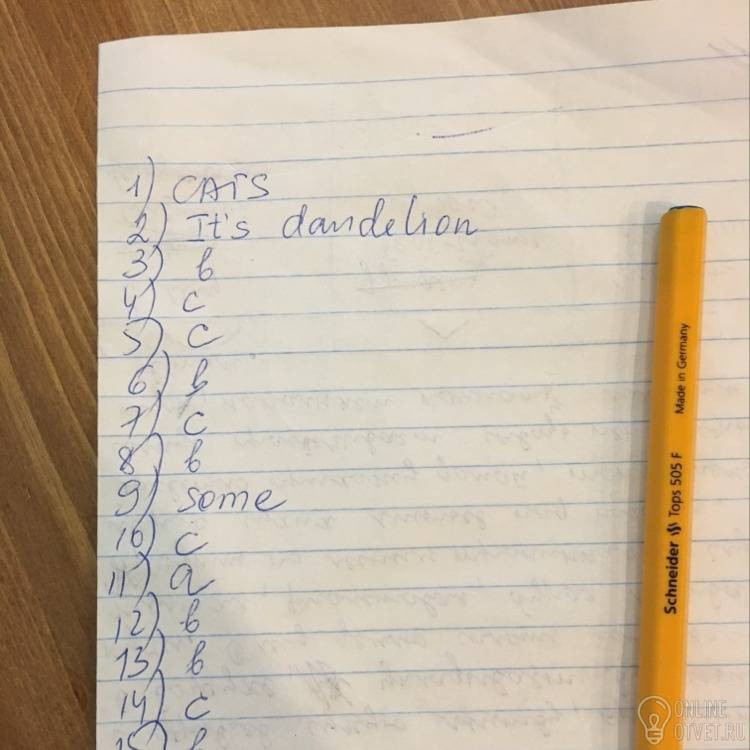 1) CATS
2) It's dandelion
3) b
4) c
5) c
6) b
7) c
8) b
9) some
10) c
11) a
12) b
13) b
14) c
15) b
Schneider Tops 505 F Made in Germany
ONLINE
OTVET.RU